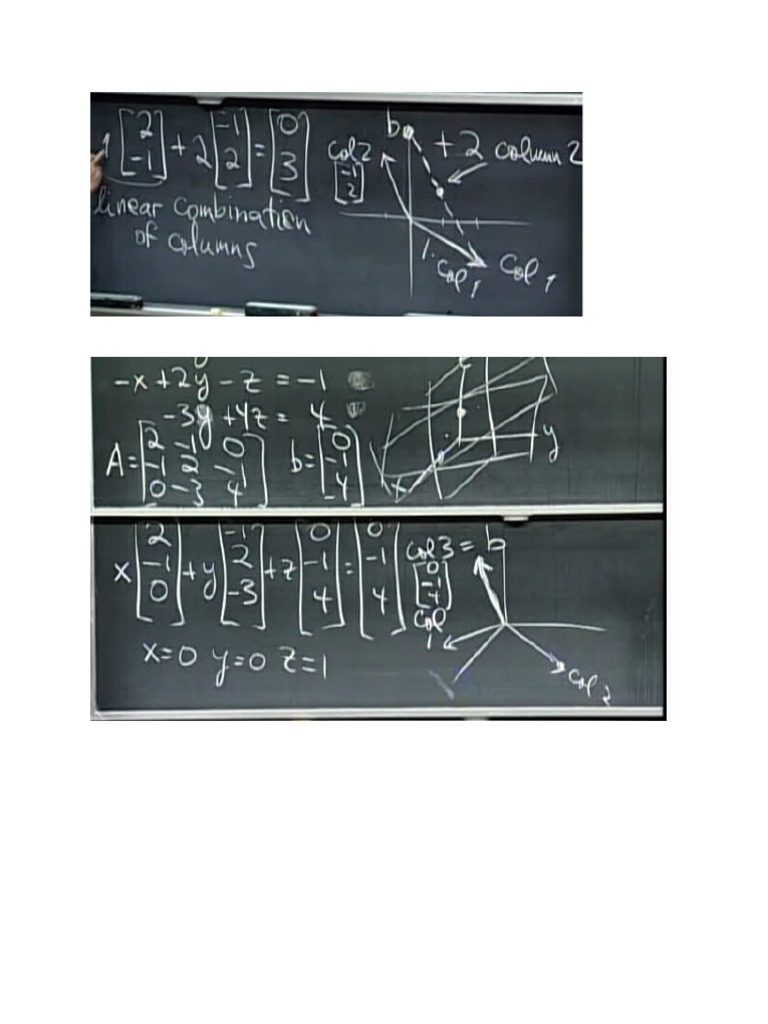 1 [2 -1] + 2 [-1 2] = [0 3]
linear combination
of columns
col 2
[-1 2]
b
+ 2 column 2
1. col 1
col 1
-x + 2y - z = -1
-3y + 4z = 4
A = [2 -1 0
-1 2 -1
0 -3 4]
b = [0 -1 4]
x
y
x [2 -1 0] + y [-1 2 -3] + z [0 -1 4] = [0 -1 4]
x=0 y=0 z=1
col 3 = b
[0 -1 4]
col
1
col 2